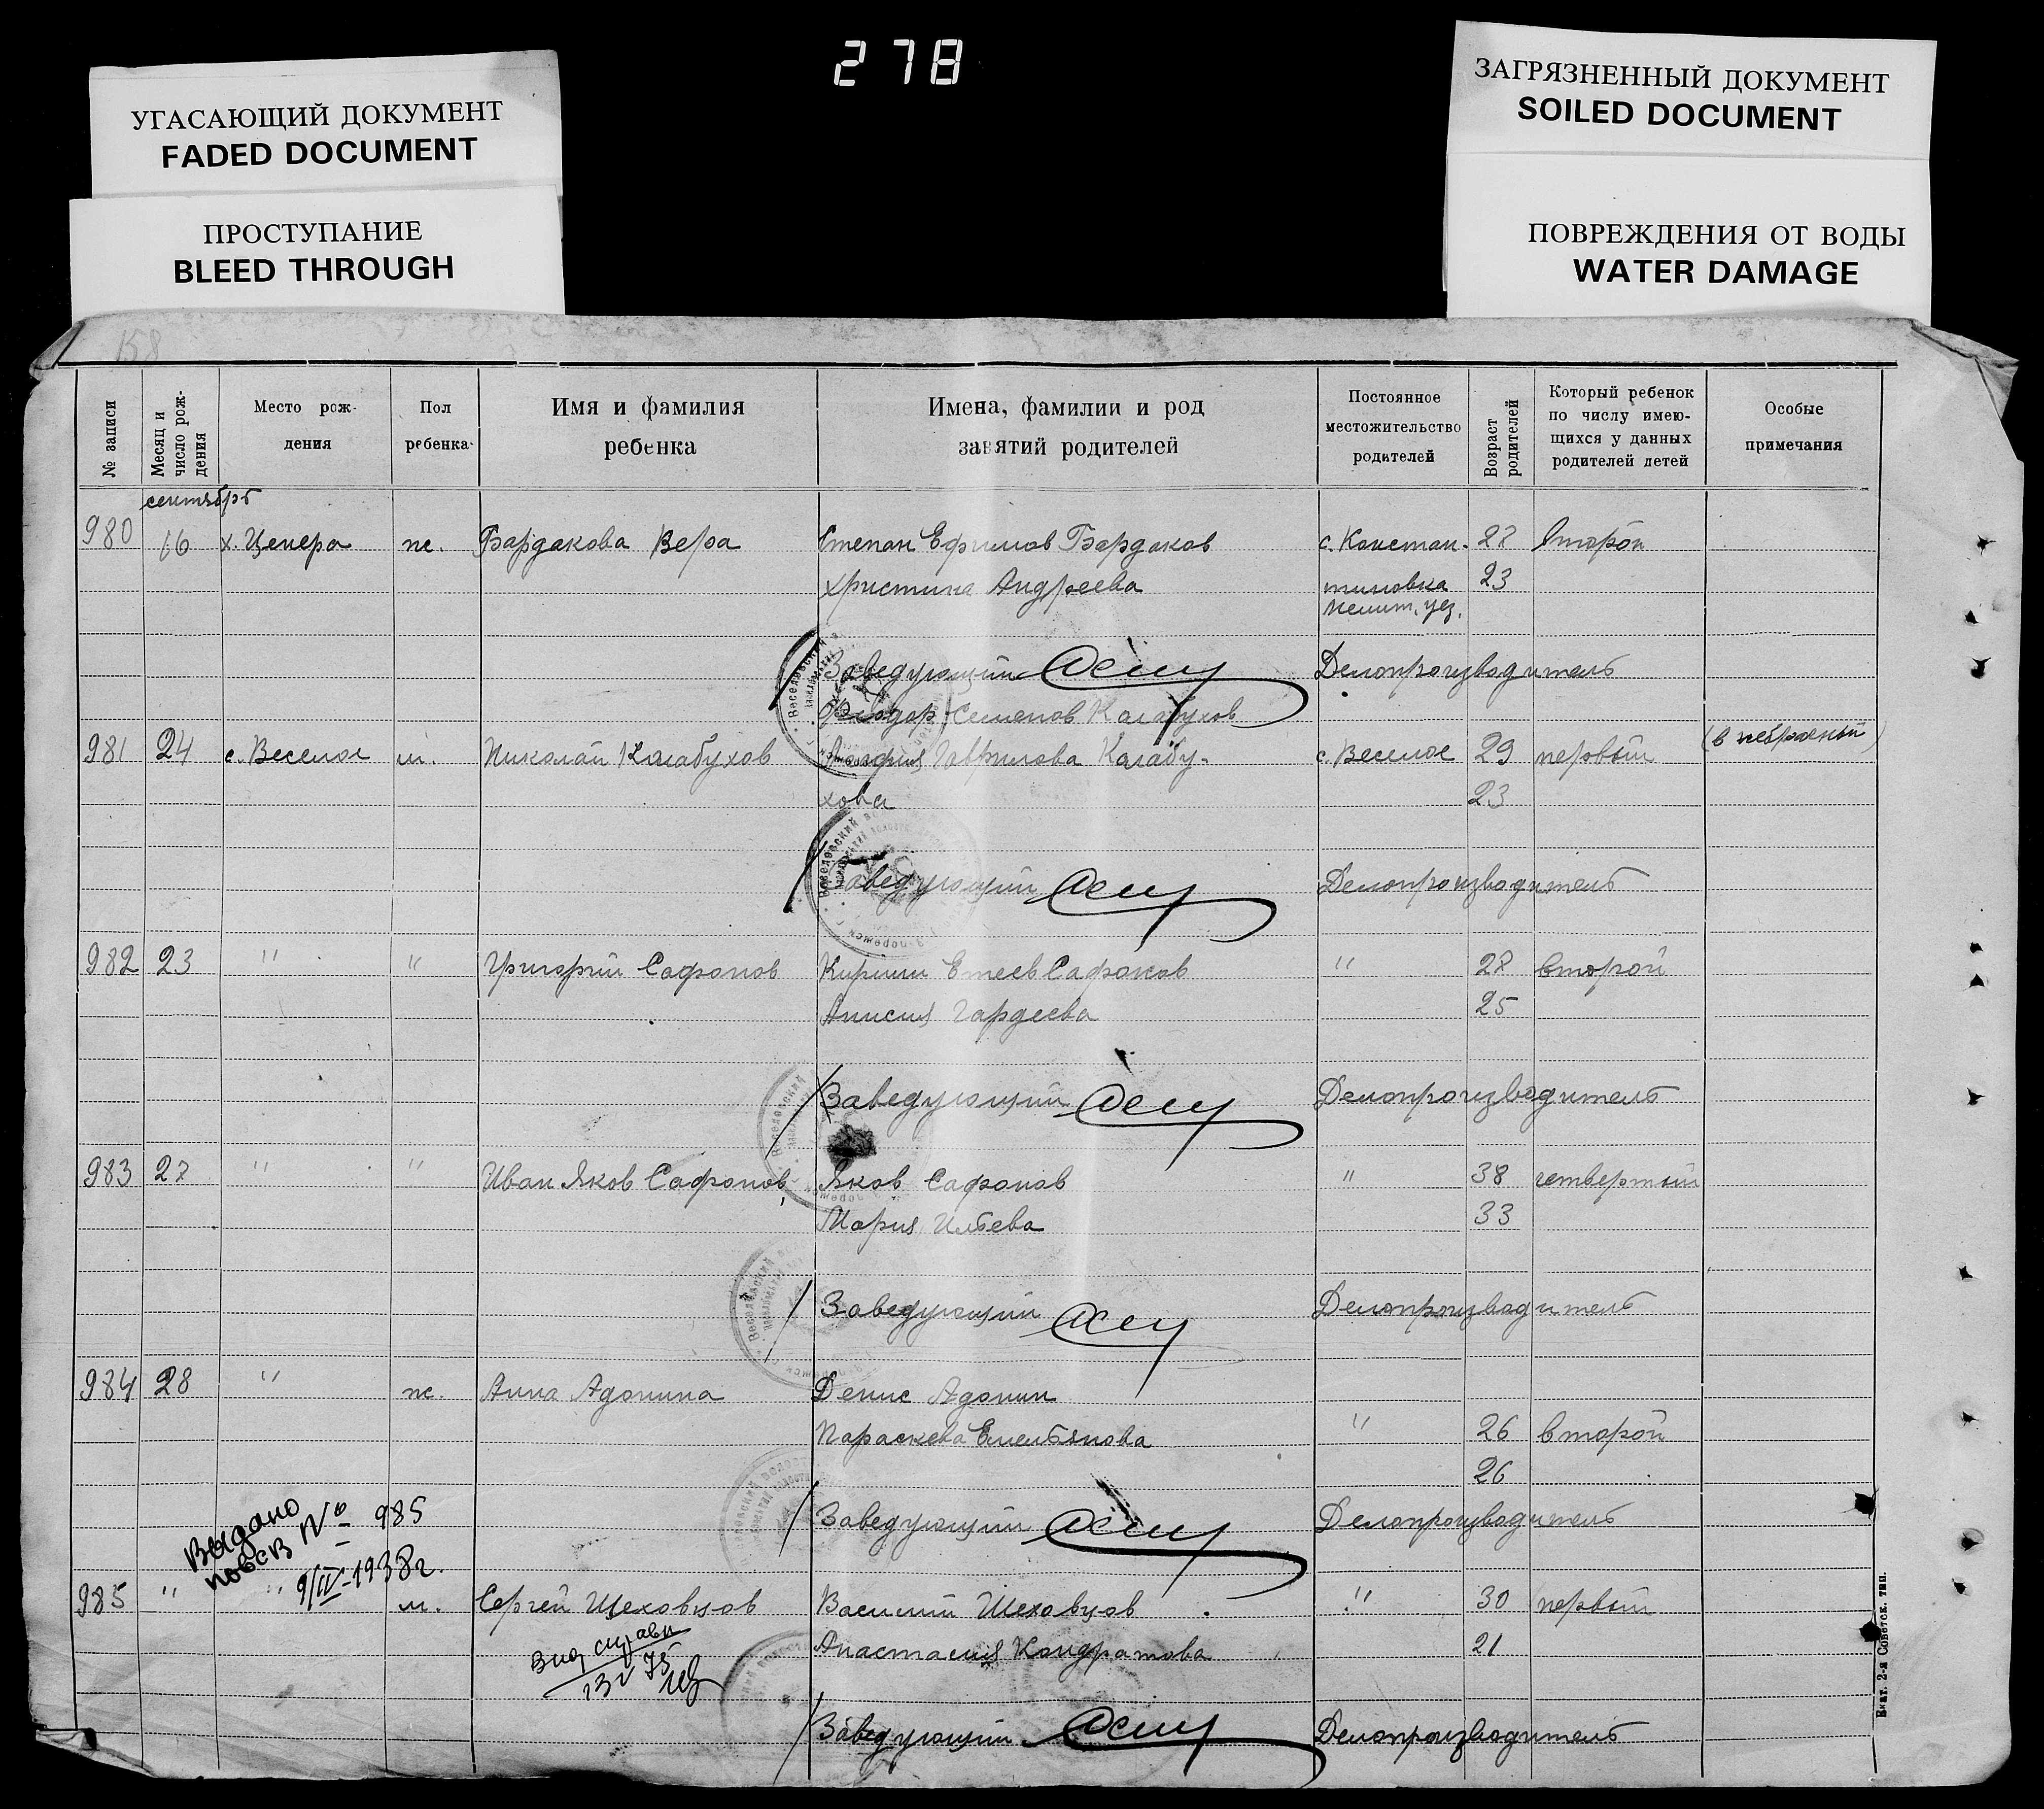 278
УГАСАЮЩИЙ ДОКУМЕНТ
FADED DOCUMENT
ПРОСТУПАНИЕ
BLEED THROUGH
ЗАГРЯЗНЕННЫЙ ДОКУМЕНТ
SOILED DOCUMENT
ПОВРЕЖДЕНИЯ ОТ ВОДЫ
WATER DAMAGE
158
№ записи
Месяц и число рождения
Место рож-
дения
Пол
ребенка
Имя и фамилия
ребенка
Имена, фамилии и род
занятий родителей
Постоянное
местожительство
родителей
Возраст
родителей
Который ребенок
по числу имею-
щихся у данных
родителей детей
Особые
примечания
сентябрь
980 16 х. Ценера ж. Бардакова Вера Степан Ефимов Бардаков с. Констан- 27 второй
Христина Андреева тиновка 23
Мелит. уез.
Заведующий Делопроизводитель
Феодор Семенов Калабухов
981 24 с. Веселое м. Николай Калабухов Гаврилова Калабу- с. Веселое 29 первый
хова 23
Заведующий Делопроизводитель
982 23 " " Григорий Сафонов Кирилл Сафонов " 27 второй
Анисия Гордеева 25
Заведующий Делопроизводитель
983 27 " " Иван Яков Сафонов Яков Сафонов " 38 четвертый
Мария Ильева 33
Заведующий Делопроизводитель
984 28 " ж. Анна Адонина Денис Адонин
Параскева Емельянова " 26 второй
26
Заведующий Делопроизводитель
Выдано
повсв № 985
9/IV-1938г.
985 " " м. Сергей Шеховцов Василий Шеховцов " 30 первый
Анастасия Кондратова 21
Заведующий Делопроизводитель
Екат. 2-я Советск. тип.